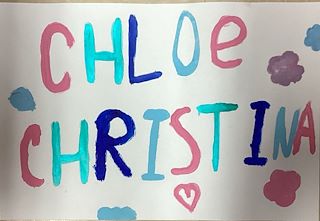 CHLOe
CHRISTINA